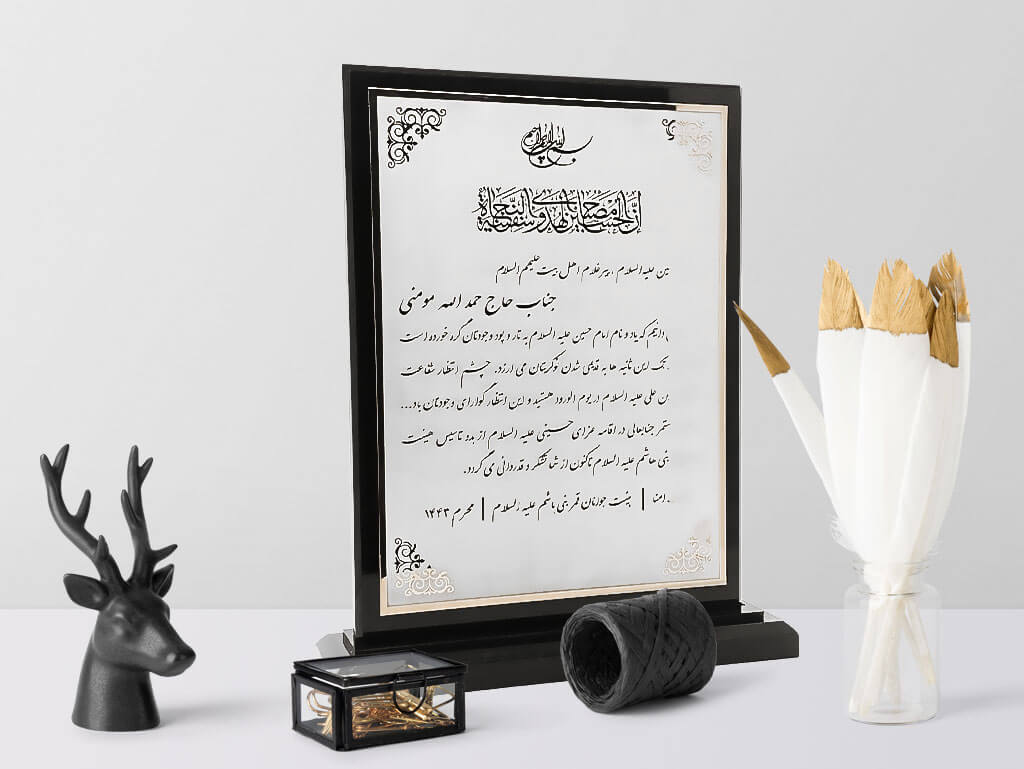 بسم الله الرحمن الرحیم
إنّ الحسین مصباح الهدی و سفینة النجاة
ین علیه السلام ، پیرغلام اهل بیت علیهم السلام
جناب حاج حمد الله مومنی
داریم که یاد و نام امام حسین علیه السلام به تار و پود وجودتان گره خورده است
تک این ثانیه ها به قدیمی شدن نوکریتان می ارزد. چشم انتظار شفاعت
ن علی علیه السلام در یوم الورود هستید و این انتظار گوارای وجودتان باد...
ستمر جنابعالی در اقامه عزای حسینی علیه السلام از بدو تاسیس هیئت
بنی هاشم علیه السلام تاکنون از شما تشکر و قدردانی می گردد.
امنا | هیئت جوانان قمر بنی هاشم علیه السلام | محرم ۱۴۴۳